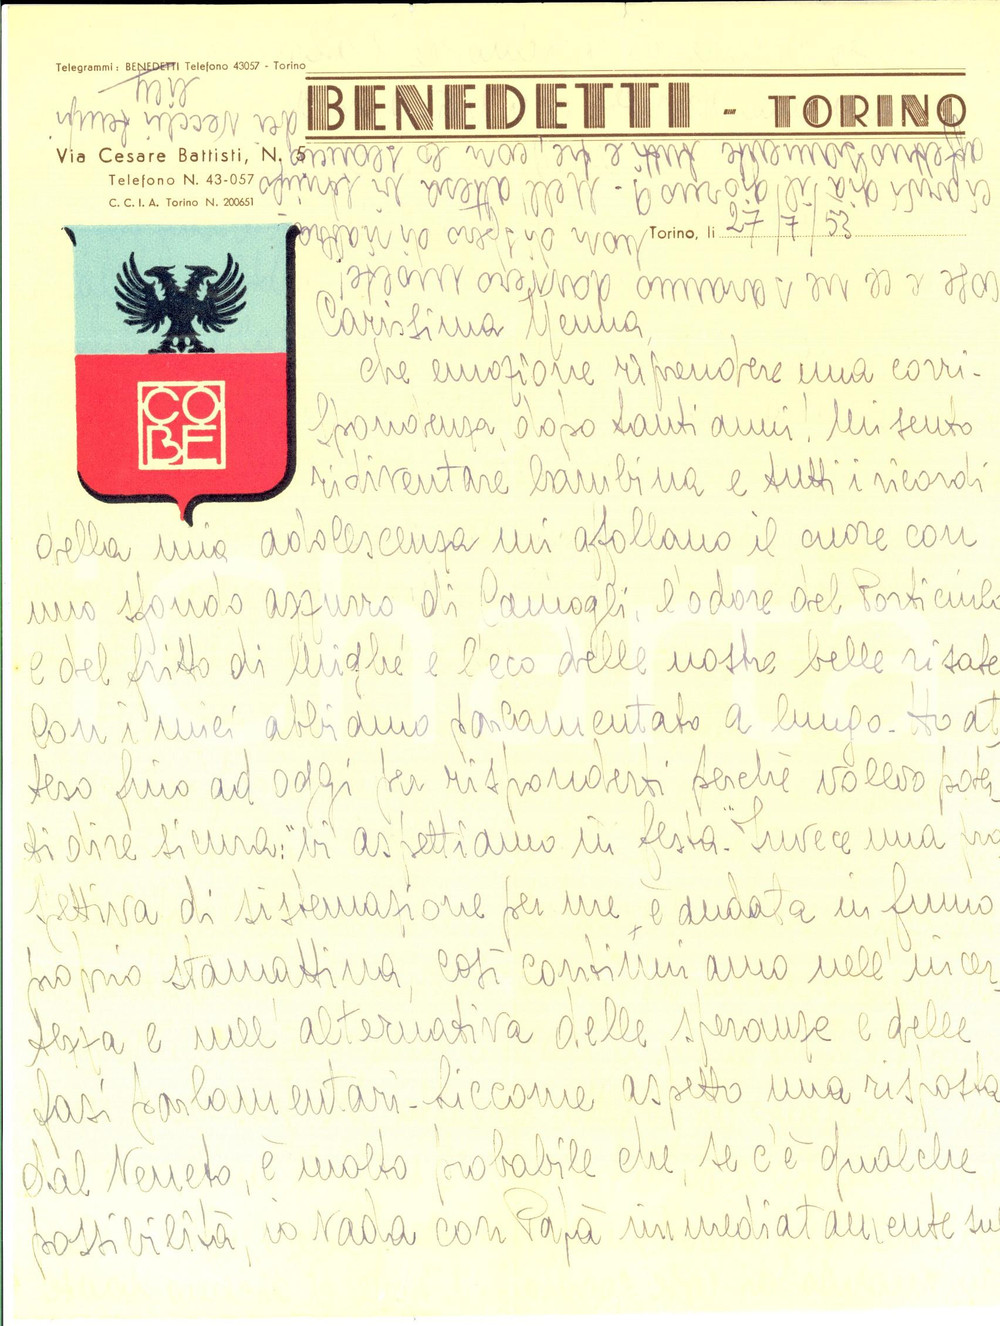 Telegrammi: BENEDETTI Telefono 43057 - Torino
BENEDETTI - TORINO
Via Cesare Battisti, N. 5
Telefono N. 43-057
C. C. I. A. Torino N. 200651
Torino, li 27/7/53
CO
BE
Carissima Menna,
che emozione riprendere una corri-
spondenza, dopo tanti anni! Mi sento
ridiventare bambina e tutti i ricordi
della mia adolescenza mi affollano il cuore con
uno sfondo azzurro di Camogli, l'odore del Porticciolo
e del fritto di e l'eco delle nostre belle risate
Con i miei abbiamo parlamentato a lungo. Ho at
teso fino ad oggi per risponderti perchè volevo poter-
ti dire sicura: "vi aspettiamo in festa." Invece una pro
spettiva di sistemazione per me, è andata in fumo
proprio stamattina, così continuiamo nell'incer-
tezza e nell'alternativa delle speranze e delle
fasi parlamentari. Siccome aspetto una risposta
dal Veneto, è molto probabile che, se c'è qualche
possibilità, io vada con Papà immediatamente sul
cose e ce ne saranno davvero molte!
non dispero di
il giorno 9. Nell'attesa vi
affettuosamente tutti e tre, con lo
dei vecchi tempi
Lily